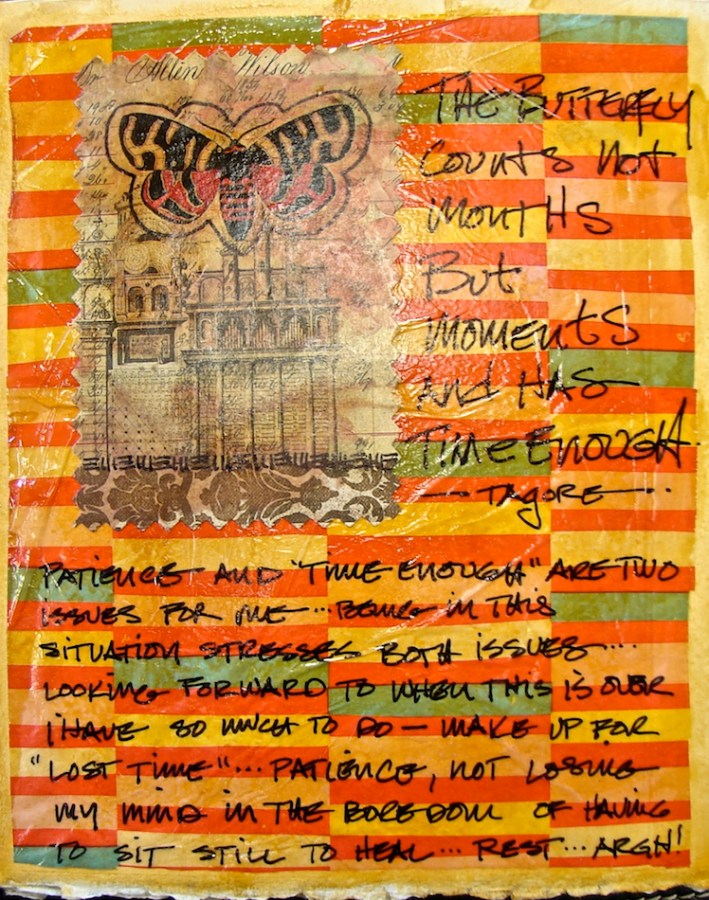 Wilson
The Butterfly
Counts not
months
But
moments
and has
Time Enough.
— Tagore — ..
Patience and "Time Enough" are two
issues for me ... Being in this
situation stresses both issues ....
Looking forward to when this is over
i have so much to do — make up for
"Lost Time" ... Patience, not losing
my mind in the boredom of having
to sit still to heal ... Rest ... Argh!